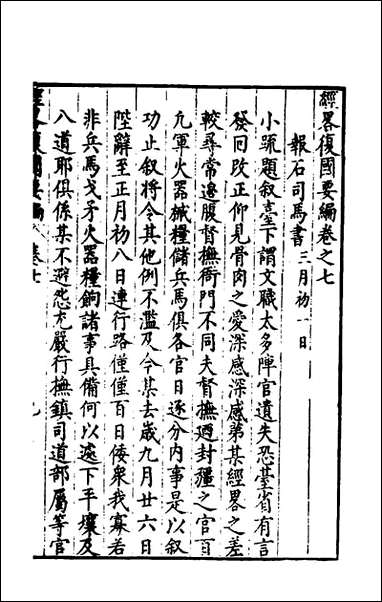 經畧復國要編卷之七
報石司馬書三月初一日
小疏題叙臺下謂文職太多陣官遺失恐臺省有言
發回改正仰見骨肉之愛深感深感弟某經畧之差
較尋常邊腹督撫衙門不同夫督撫廼封疆之官百
凢軍火器械糧儲兵馬俱各官日逐分内事是以叙
功止叙將令其他例不濫及今某去歲九月廿六日
陛辭至正月初八日連行路僅僅百日倭衆我寡若
非兵馬戈矛火器糧餉諸事具備何以遂下平壤及
八道耶俱係某不避怨尤嚴行撫鎮司道部屬等官